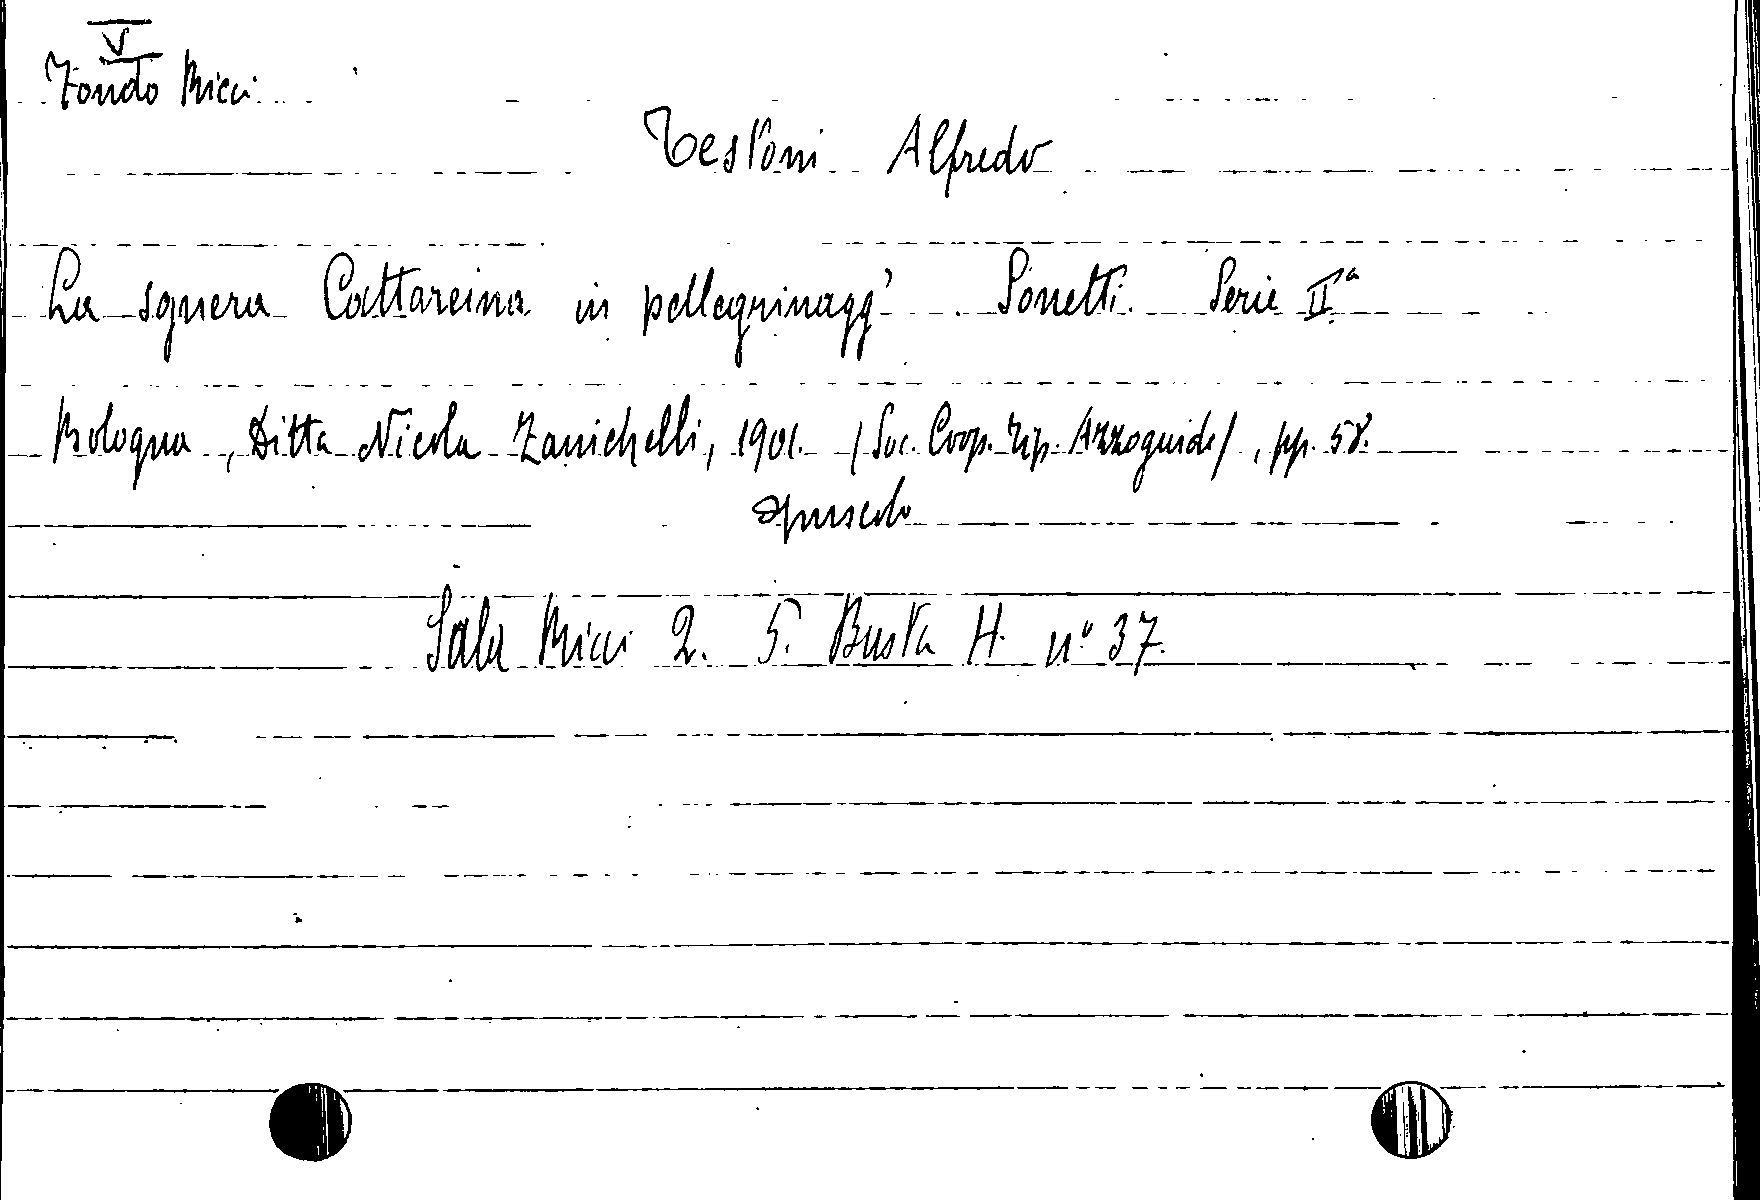 V
Fondo Ricci
Testoni Alfredo
La sgnera Cattareina in pellegrinagg' Sonetti. Serie IIª
Bologna, Ditta Nicola Zanichelli, 1901. (Soc. Coop. Tip. Azzoguidi), pp. 58.
opuscolo
Sala Ricci 2. 5. Busta H. nº 37.